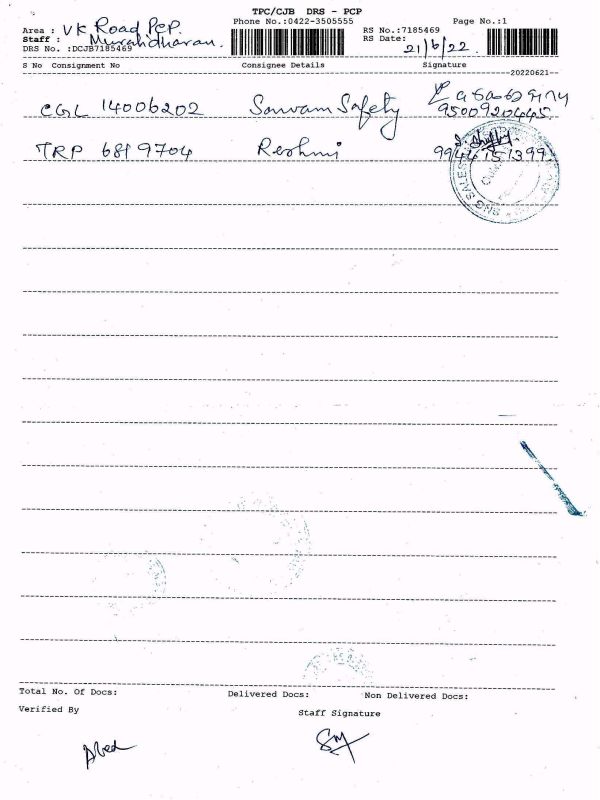 TPC/CJB DRS - PCP
Area : VK Road PCP. Phone No.:0422-3505555 Page No.:1
Staff : Muralidharan. RS No.:7185469
DRS No. :DCJB7185469 RS Date: 21/6/22.
S No Consignment No Consignee Details Signature
20220621
CGL 14006202 Sarvam Safety
9500920445
TRP 6819704 Reshmi 9944151399
BNG SALES
Total No. Of Docs: Delivered Docs: Non Delivered Docs:
Verified By Staff Signature